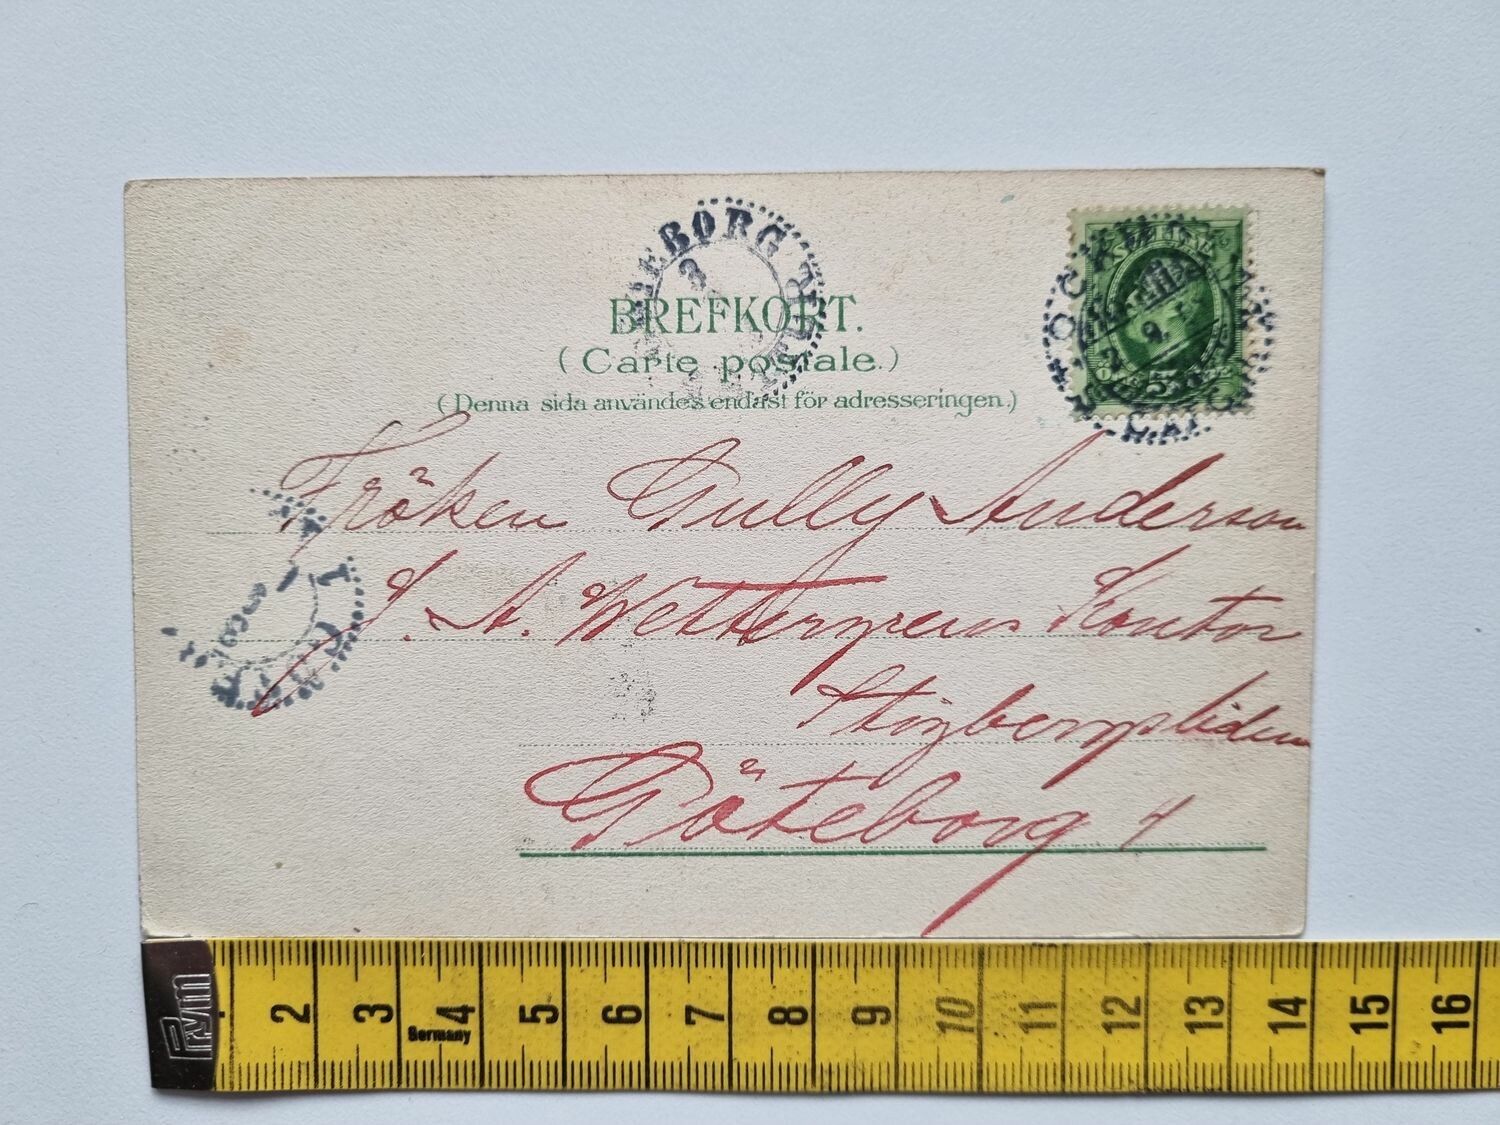 BREFKORT.
(Carte postale.)
(Denna sida användes endast för adresseringen.)
Fröken Gully Anderson
A. Wettergrens Kontor
Göteborg
5
prym
2 3 4 5 6 7 8 9 10 11 12 13 14 15 16
Germany